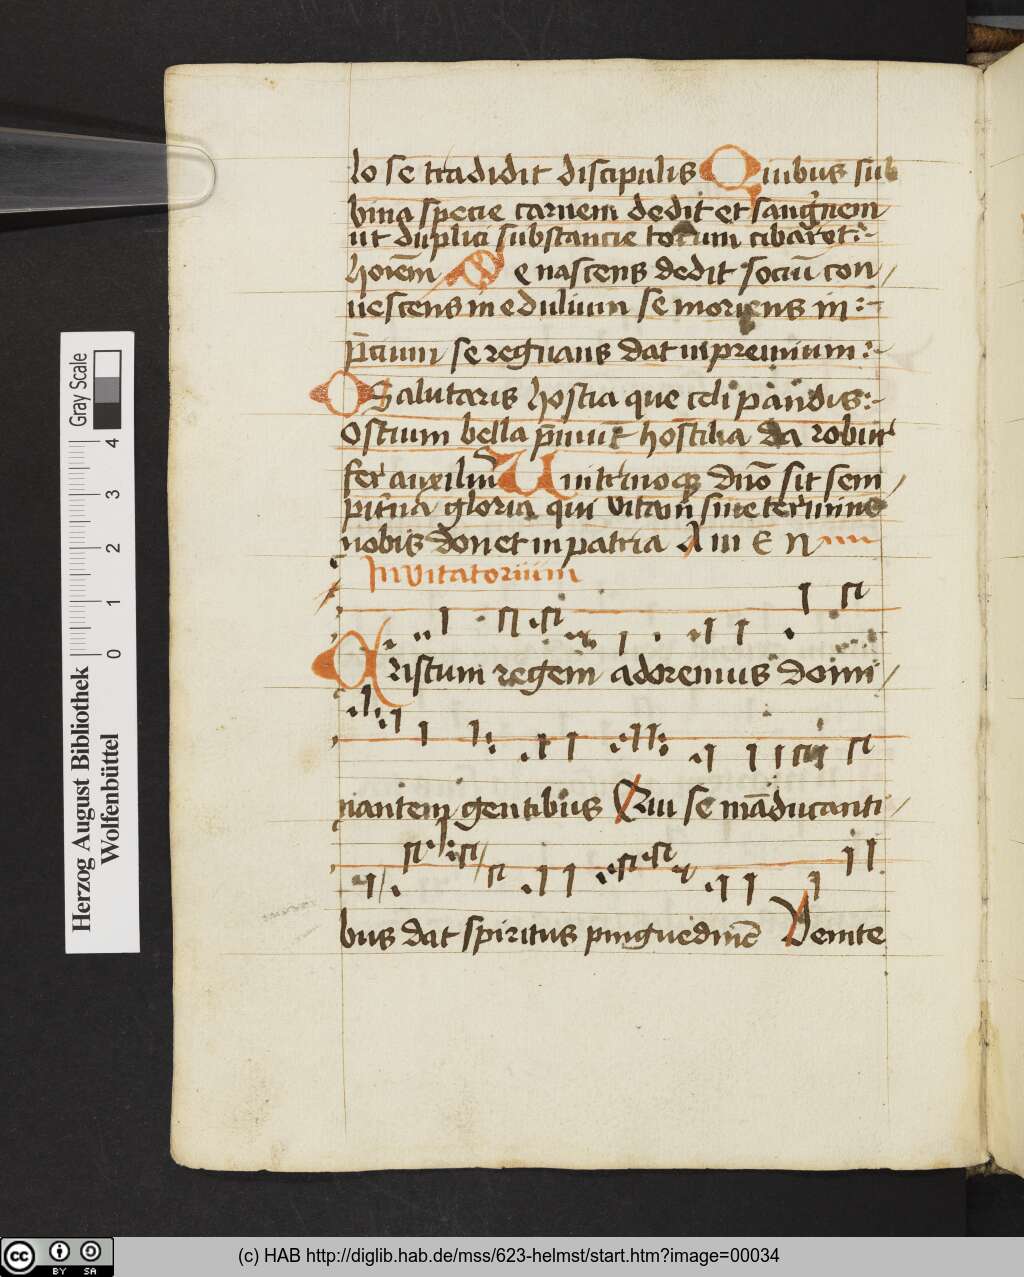 lo se tradidit discipulis Quibus sub
bina specie carnem dedit et sangwnem
ut duplici substancie totum cibaret
hoīem Se nascens dedit sociū con/
uescens in edulium se moriens in
p̄cium se regnans dat in premium
O Salutaris hostia que celi pandis
Ostium bella p̄mūt hostilia da robur
fer auxiliū Uni trinoqꝫ dn̄o sit sem/
pit̄na gloria qui vitam sine termino
nobis donet in patria A M E N
Invitatorium
Xristum regem adoremus domi/
nantem gentibus Qui se māducanti/
bus dat spiritus pinguedinē Venite
Herzog August Bibliothek
Wolfenbüttel
Gray Scale
0 1 2 3 4
cc BY SA
(c) HAB http://diglib.hab.de/mss/623-helmst/start.htm?image=00034